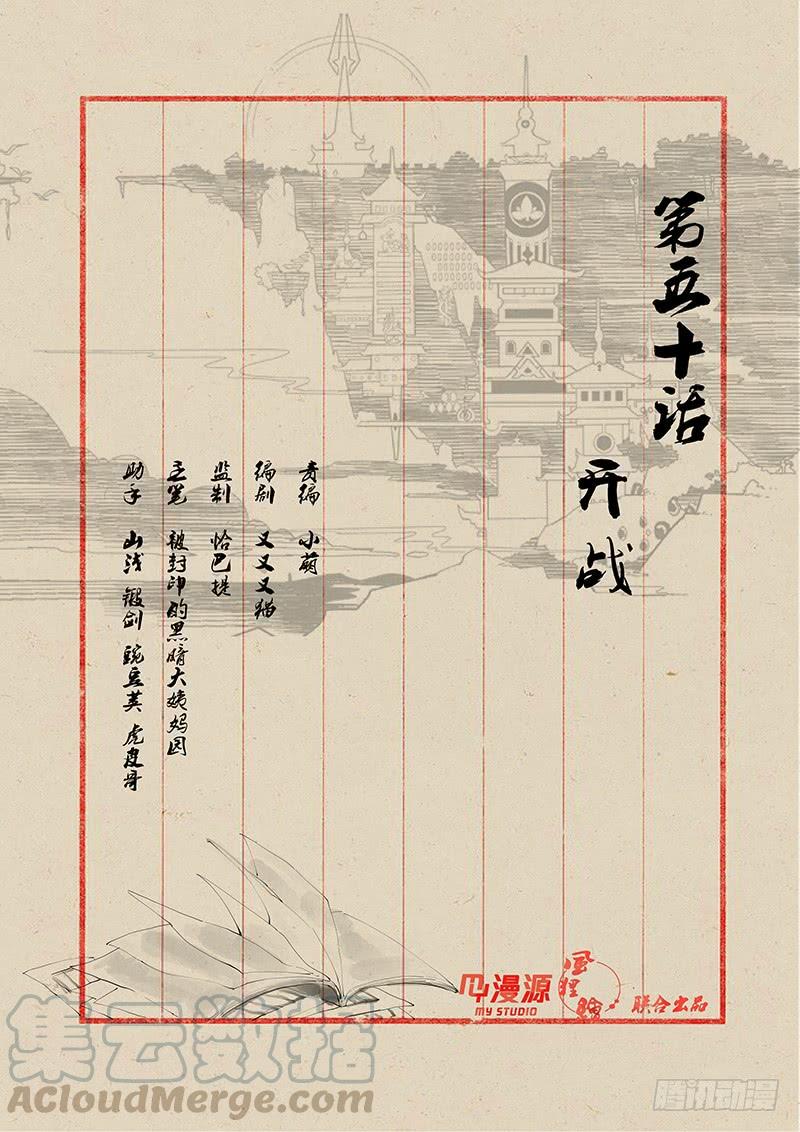 第五十话
开战
责编 小萌
编剧 又又又猫
监制 恰巴提
主笔 被封印的黑暗大姨妈园
助手 山浅 锻剑 豌豆荚 虎皮哥
漫源
MY STUDIO
联合出品
集云数据
ACloudMerge.com
腾讯动漫